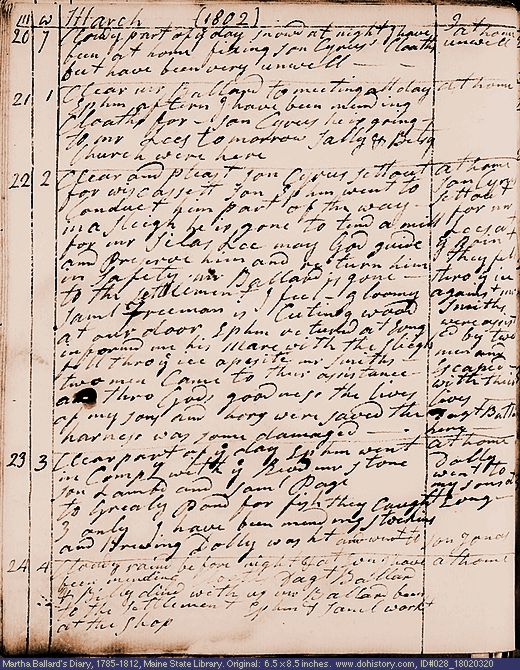 III w March (1802)
20 7 Clowy part of ye day snow'd at night I have at home
been at home fixing son Cyrus' Cloaths unwell
but have been very unwell
21 1 Clear mr Ballard to meeting all day at home
Ephm aftern I have been mending
Cloaths for son Cyrus he is going
to mr Lees tomorrow Sally & Betsy
Church were here
22 2 Clear and pleast son Cyrus sett out at home
for wiscassett son Ephm went to son Cyrs
Conduct him part of the way sett out
in a sleigh he is gone to tend a mill for mr
for mr Silas Lee may God guide Lees at
and preserve him and return him
in safety mr Ballard is gone they fell
to the settlement I feel gloomy thro ye ice
Saml Freeman is Cuting wood against mr
at our door Ephm returnd at Evng Smiths
informd me his mare with the sleigh were assist
fell thro ye ice aposite mr Smiths ed by two
two men Came to their asistance men and
and thro Gods goodness the lives escapd
of my sons and hors were saved the with their
harness was some damaged lives
Dagt Ballard
here
23 3 Clear part of ye day Ephm went at home
in Comp with mr Stone Dolly
son Lambd and Saml Page went to
to Greely Pond for fish they Caught my sons at
3 only I have been mending stockins Evng
and Brewing Dolly washt and went to sons
24 4 before night I have at home
been mending Dagt Ballard
& Billy dind with us mr Ballard been
to the settlement Ephm & Saml workt
at the shop
Martha Ballard's Diary, 1785-1812, Maine State Library. Original: 6.5 x 8.5 inches. www.dohistory.com, ID#028_18020320